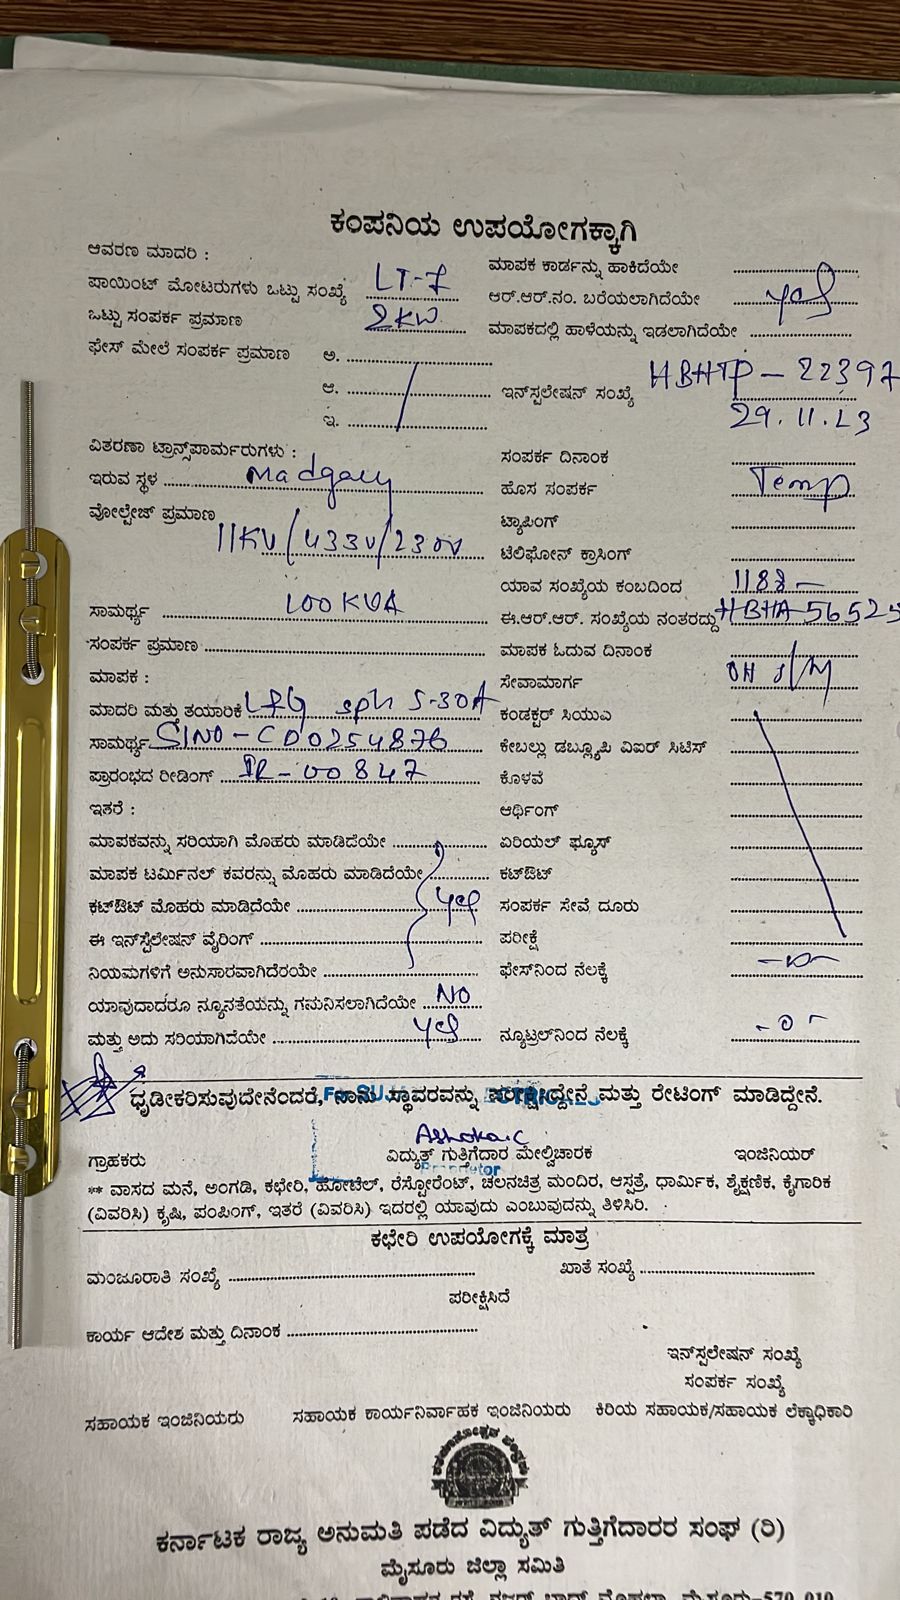 ಕಂಪನಿಯ ಉಪಯೋಗಕ್ಕಾಗಿ
ಆವರಣ ಮಾದರಿ :
ಮಾಪಕ ಕಾರ್ಡನ್ನು ಹಾಕಿದೆಯೇ
ಪಾಯಿಂಟ್ ಮೋಟರುಗಳು ಒಟ್ಟು ಸಂಖ್ಯೆ LT-7
ಆರ್.ಆರ್.ನಂ. ಬರೆಯಲಾಗಿದೆಯೇ yes
ಒಟ್ಟು ಸಂಪರ್ಕ ಪ್ರಮಾಣ 2KW
ಮಾಪಕದಲ್ಲಿ ಹಾಳೆಯನ್ನು ಇಡಲಾಗಿದೆಯೇ
ಫೇಸ್ ಮೇಲೆ ಸಂಪರ್ಕ ಪ್ರಮಾಣ ಅ.
ಆ.
ಇನ್‌ಸ್ಪಲೇಷನ್ ಸಂಖ್ಯೆ HBHTP - 22397
ಇ.
29.11.23
ವಿತರಣಾ ಟ್ರಾನ್ಸ್‌ಪಾರ್ಮರುಗಳು :
ಸಂಪರ್ಕ ದಿನಾಂಕ
ಇರುವ ಸ್ಥಳ
ಹೊಸ ಸಂಪರ್ಕ Temp
ವೋಲ್ಟೇಜ್ ಪ್ರಮಾಣ 11KV/433V/230V
ಟ್ಯಾಪಿಂಗ್
ಟೆಲಿಫೋನ್ ಕ್ರಾಸಿಂಗ್
ಯಾವ ಸಂಖ್ಯೆಯ ಕಂಬದಿಂದ 1188 -
ಸಾಮರ್ಥ್ಯ 100 KVA
ಈ.ಆರ್.ಆರ್. ಸಂಖ್ಯೆಯ ನಂತರದ್ದು HBHA 56525
ಸಂಪರ್ಕ ಪ್ರಮಾಣ
ಮಾಪಕ ಓದುವ ದಿನಾಂಕ
ಮಾಪಕ :
ಸೇವಾಮಾರ್ಗ OH
ಮಾದರಿ ಮತ್ತು ತಯಾರಿಕೆ L&G sph 5-30A
ಕಂಡಕ್ಟರ್ ಸಿಯುಎ
ಸಾಮರ್ಥ್ಯ SlNO - CD0254876
ಕೇಬಲ್ಲು ಡಬ್ಲ್ಯೂಪಿ ವಿಐರ್ ಸಿಟಿಸ್
ಪ್ರಾರಂಭದ ರೀಡಿಂಗ್ IR - 00847
ಕೊಳವೆ
ಇತರೆ :
ಆರ್ಥಿಂಗ್
ಮಾಪಕವನ್ನು ಸರಿಯಾಗಿ ಮೊಹರು ಮಾಡಿದೆಯೇ
ಏರಿಯಲ್ ಫ್ಯೂಸ್
ಮಾಪಕ ಟರ್ಮಿನಲ್ ಕವರನ್ನು ಮೊಹರು ಮಾಡಿದೆಯೇ
ಕಟ್‌ಔಟ್
ಕಟ್‌ಔಟ್ ಮೊಹರು ಮಾಡಿದೆಯೇ yes
ಸಂಪರ್ಕ ಸೇವೆ ದೂರು
ಈ ಇನ್‌ಸ್ಪೆಲೇಷನ್ ವೈರಿಂಗ್
ಪರೀಕ್ಷೆ
ನಿಯಮಗಳಿಗೆ ಅನುಸಾರವಾಗಿದೆರಯೇ
ಫೇಸ್‌ನಿಂದ ನೆಲಕ್ಕೆ -0-
ಯಾವುದಾದರೂ ನ್ಯೂನತೆಯನ್ನು ಗಮನಿಸಲಾಗಿದೆಯೇ NO
ಮತ್ತು ಅದು ಸರಿಯಾಗಿದೆಯೇ yes
ನ್ಯೂಟ್ರಲ್‌ನಿಂದ ನೆಲಕ್ಕೆ -0-
ಧೃಡೀಕರಿಸುವುದೇನೆಂದರೆ, ನಾನು ಸ್ಥಾವರವನ್ನು ಪರೀಕ್ಷಿಸಿದ್ದೇನೆ ಮತ್ತು ರೇಟಿಂಗ್ ಮಾಡಿದ್ದೇನೆ.
Ashoka.C
ಗ್ರಾಹಕರು ವಿದ್ಯುತ್ ಗುತ್ತಿಗೆದಾರ ಮೇಲ್ವಿಚಾರಕ ಇಂಜಿನಿಯರ್
Proprietor
** ವಾಸದ ಮನೆ, ಅಂಗಡಿ, ಕಛೇರಿ, ಹೋಟೆಲ್, ರೆಸ್ಟೋರೆಂಟ್, ಚಲನಚಿತ್ರ ಮಂದಿರ, ಆಸ್ಪತ್ರೆ, ಧಾರ್ಮಿಕ, ಶೈಕ್ಷಣಿಕ, ಕೈಗಾರಿಕ
(ವಿವರಿಸಿ) ಕೃಷಿ, ಪಂಪಿಂಗ್, ಇತರೆ (ವಿವರಿಸಿ) ಇದರಲ್ಲಿ ಯಾವುದು ಎಂಬುವುದನ್ನು ತಿಳಿಸಿರಿ.
ಕಛೇರಿ ಉಪಯೋಗಕ್ಕೆ ಮಾತ್ರ
ಮಂಜೂರಾತಿ ಸಂಖ್ಯೆ ಖಾತೆ ಸಂಖ್ಯೆ
ಪರೀಕ್ಷಿಸಿದೆ
ಕಾರ್ಯ ಆದೇಶ ಮತ್ತು ದಿನಾಂಕ
ಇನ್‌ಸ್ಪಲೇಷನ್ ಸಂಖ್ಯೆ
ಸಂಪರ್ಕ ಸಂಖ್ಯೆ
ಸಹಾಯಕ ಇಂಜಿನಿಯರು ಸಹಾಯಕ ಕಾರ್ಯನಿರ್ವಾಹಕ ಇಂಜಿನಿಯರು ಕಿರಿಯ ಸಹಾಯಕ/ಸಹಾಯಕ ಲೆಕ್ಕಾಧಿಕಾರಿ
ಕರ್ನಾಟಕ ರಾಜ್ಯ ಅನುಮತಿ ಪಡೆದ ವಿದ್ಯುತ್ ಗುತ್ತಿಗೆದಾರರ ಸಂಘ (ರಿ)
ಮೈಸೂರು ಜಿಲ್ಲಾ ಸಮಿತಿ